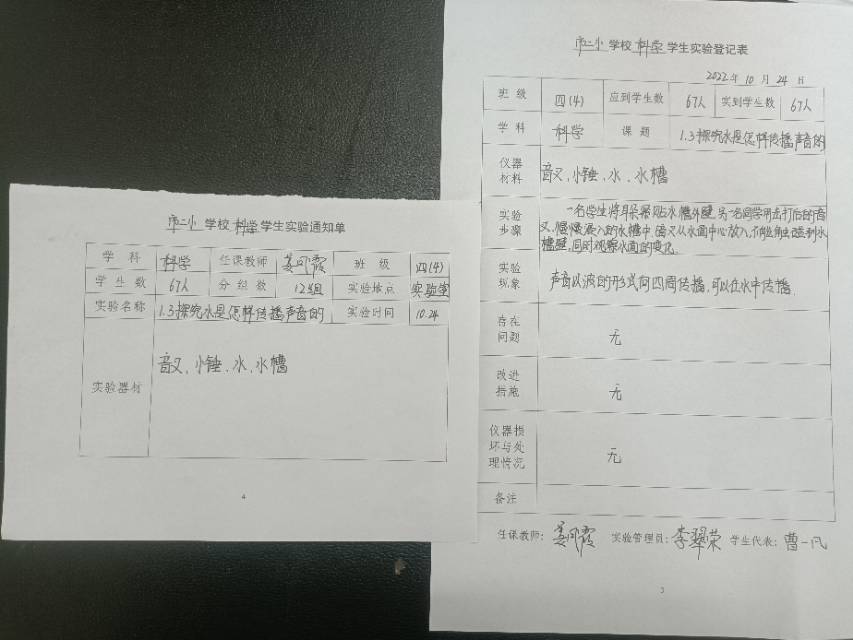 市二小 学校 科学 学生实验通知单
学科 科学 任课教师 姜风霞 班级 四(4)
学生数 67人 分组数 12组 实验地点 实验室
实验名称 1.3探究水是怎样传播声音的 实验时间 10.24
实验器材 音叉、小锤、水、水槽
4
市二小 学校 科学 学生实验登记表
2022年 10 月 24 日
班级 四(4) 应到学生数 67人 实到学生数 67人
学科 科学 课题 1.3探究水是怎样传播声音的
仪器
材料 音叉、小锤、水、水槽
实验
步骤 一名学生将耳朵紧贴水槽外壁,另一名同学用击打后的音
叉,慢慢浸入的水槽中,音叉从水面中心放入,不能触击到水
槽壁,同时观察水面的变化。
实验
现象 声音以波的形式向四周传播,可以在水中传播.
存在
问题 无
改进
措施 无
仪器损
坏与处
理情况 无
备注
任课教师: 姜风霞 实验管理员: 李翠荣 学生代表: 曹一凡
3